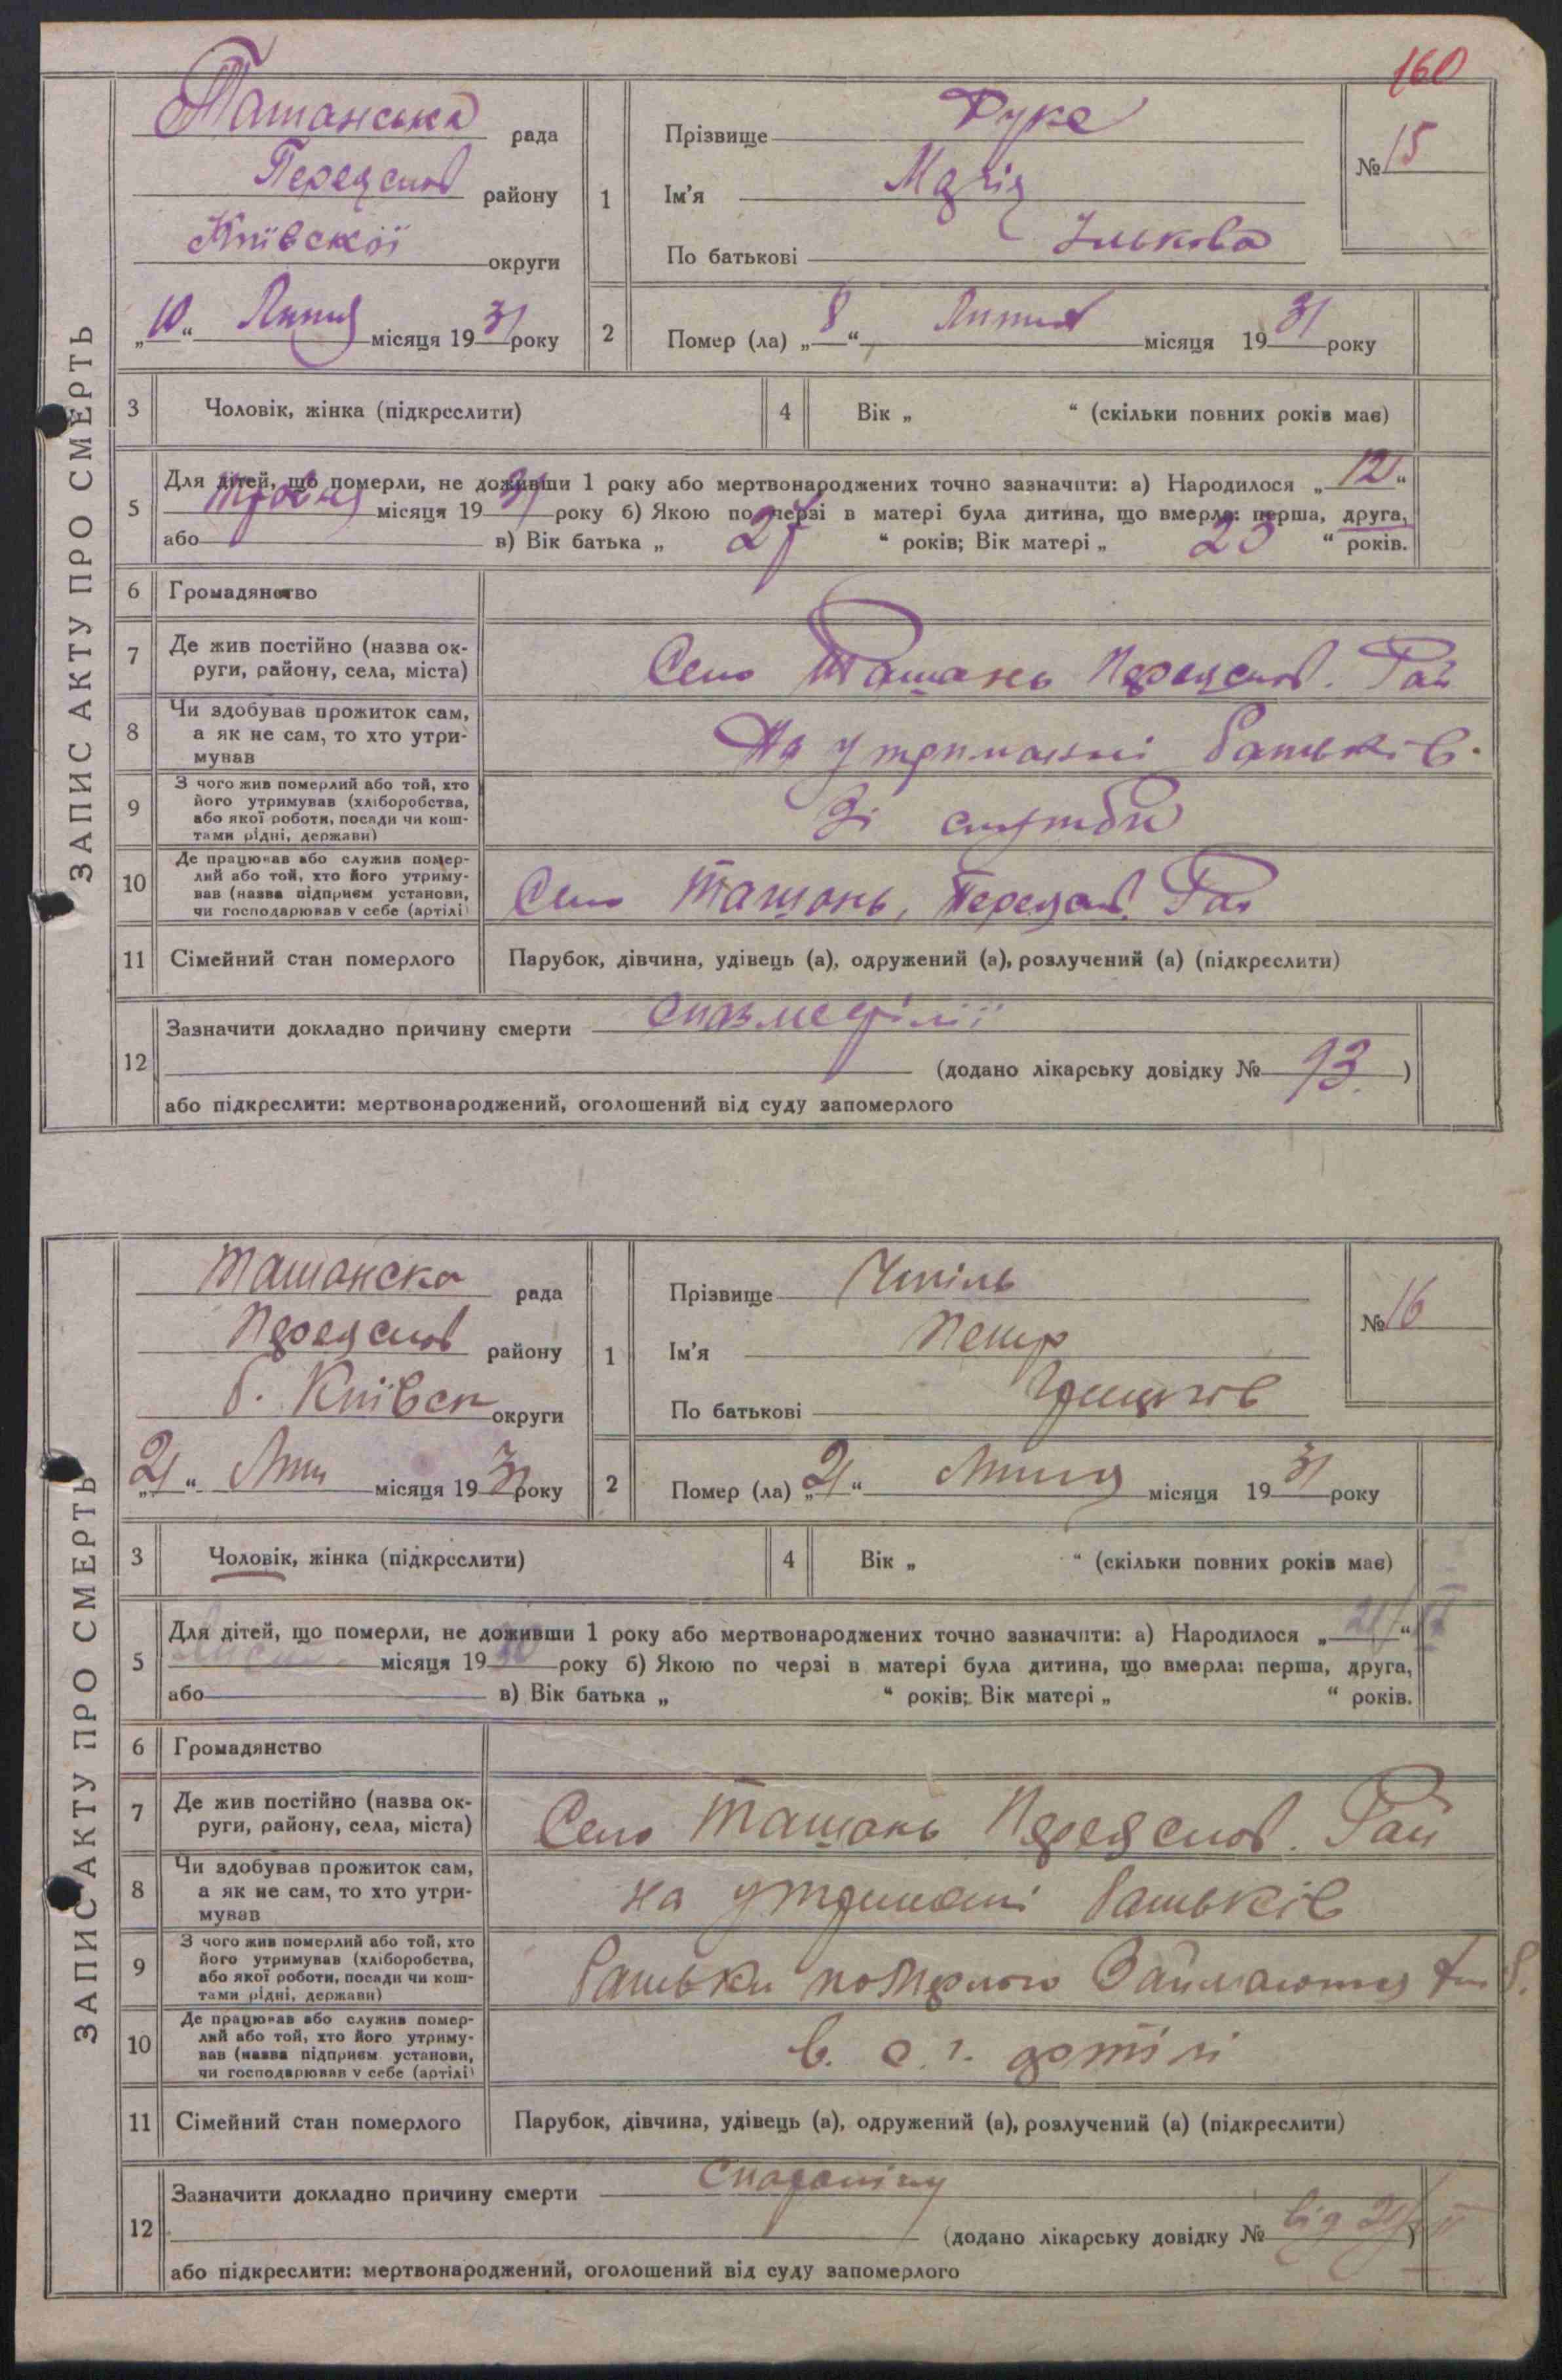 160
ЗАПИС АКТУ ПРО СМЕРТЬ
Ташанська рада
Переяслов району
Київскої округи
„10“ Липня місяця 1931 року
1
Прізвище Дуке
Ім'я Марія
По батькові Ількова
№ 15
2
Помер (ла) „8“ Липня місяця 1931 року
3
Чоловік, жінка (підкреслити)
4
Вік „ “ (скільки повних років має)
5
Для дітей, що померли, не доживши 1 року або мертвонароджених точно зазначити: а) Народилося „12“
травня місяця 1931 року б) Якою по черзі в матері була дитина, що вмерла: перша, друга,
або в) Вік батька „ 27 “ років; Вік матері „ 23 “ років.
6
Громадянство
7
Де жив постійно (назва ок-
руги, району, села, міста)
Село Ташань Переяслов. Рай
8
Чи здобував прожиток сам,
а як не сам, то хто утри-
мував
На утриманні батьків.
9
З чого жив померлий або той, хто
його утримував (хліборобства,
або якої роботи, посади чи кош-
тами рідні, держави)
Зі служби
10
Де працював або служив помер-
лий або той, хто його утриму-
вав (назва підприєм установи,
чи господарював у себе (артілі)
Село Ташань, Переяслов. Рай
11
Сімейний стан померлого
Парубок, дівчина, удівець (а), одружений (а), розлучений (а) (підкреслити)
12
Зазначити докладно причину смерти
(додано лікарську довідку № 93.)
або підкреслити: мертвонароджений, оголошений від суду запомерлого
ЗАПИС АКТУ ПРО СМЕРТЬ
Ташанска рада
Переяслов району
б. Київск округи
„21“ Лип місяця 1931 року
1
Прізвище Чміль
Ім'я Петр
По батькові Грицьків
№ 16
2
Помер (ла) „21“ Липня місяця 1931 року
3
Чоловік, жінка (підкреслити)
4
Вік „ “ (скільки повних років має)
5
Для дітей, що померли, не доживши 1 року або мертвонароджених точно зазначити: а) Народилося „21“
Лист. місяця 1930 року б) Якою по черзі в матері була дитина, що вмерла: перша, друга,
або в) Вік батька „ “ років; Вік матері „ “ років.
6
Громадянство
7
Де жив постійно (назва ок-
руги, району, села, міста)
Село Ташань Переяслов. Рай
8
Чи здобував прожиток сам,
а як не сам, то хто утри-
мував
на утримані батьків
9
З чого жив померлий або той, хто
його утримував (хліборобства,
або якої роботи, посади чи кош-
тами рідні, держави)
батьки померлого Займаються
10
Де працював або служив помер-
лий або той, хто його утриму-
вав (назва підприєм установи,
чи господарював у себе (артілі)
в. с. г. артілі
11
Сімейний стан померлого
Парубок, дівчина, удівець (а), одружений (а), розлучений (а) (підкреслити)
12
Зазначити докладно причину смерти
(додано лікарську довідку № від 21)
або підкреслити: мертвонароджений, оголошений від суду запомерлого